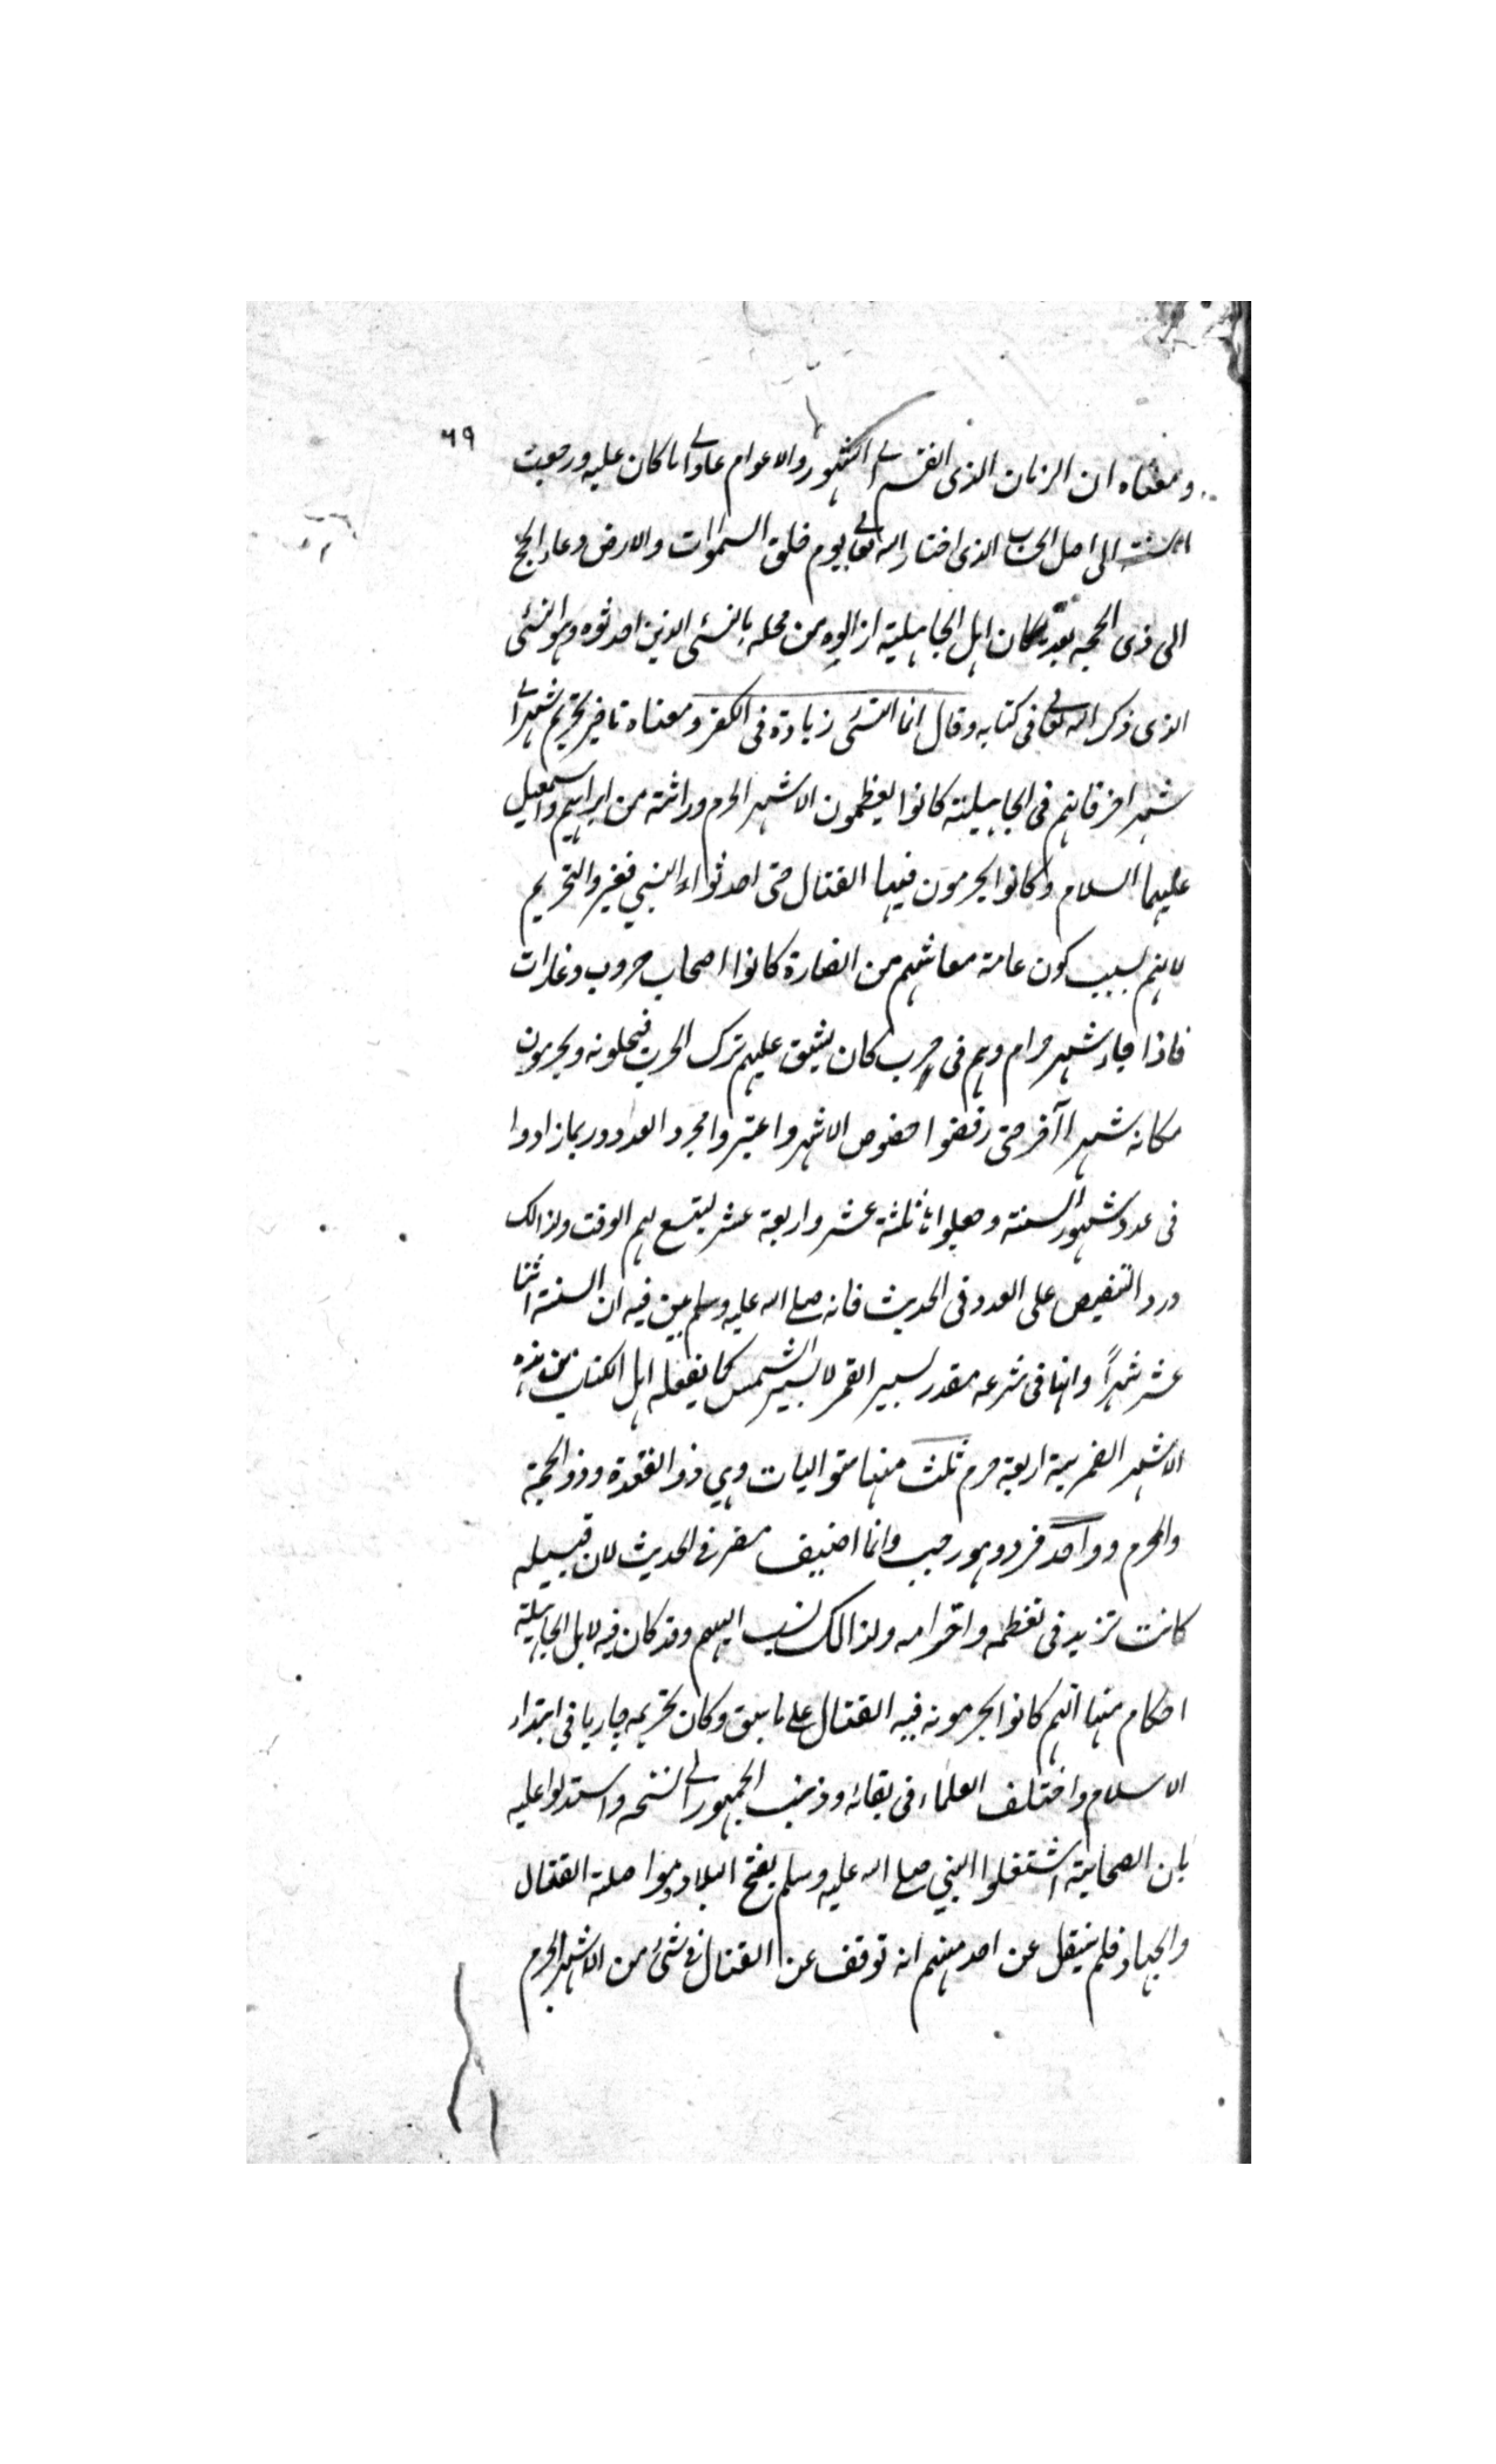 ٦٩
ومعناه ان الزمان الذى انقسم الى الشهور والاعوام عاد الى ما كان عليه ورجعت
السنة الى اصل الحساب الذى اختاره الله تعالى يوم خلق السموات والارض وعاد الحج
الى ذى الحجه بعد ما كان اهل الجاهلية ازالوه من محله بالنسئ الذين احدثوه وهو النسئ
الذى ذكر الله تعالى فى كتابه وقال انما النسئ زيادة فى الكفر ومعناه تاخير تحريم شهر الى
شهر اخر فانهم فى الجاهلية كانوا يعظمون الاشهر الحرم وراثة من ابراهيم واسمعيل
عليهما السلام وكانوا يحرمون فيها القتال حتى احدثوا النسئ فغيروا التحريم
لانهم بسبب كون عامة معاشهم من الغارة كانوا اصحاب حروب وغارات
فاذا جاء شهر حرام وهم فى حرب كان يشق عليهم ترك الحرب فيحلونه ويحرمون
مكانه شهرا آخر حتى رفضوا خصوص الاشهر واعتبروا مجرد العدد وربما زادوا
فى عدد شهور السنة وجعلوا ثلثة عشر واربعة عشر ليتسع لهم الوقت ولذالك
ورد التنصيص على العدد فى الحديث فانه صلى الله عليه وسلم بين فيه ان السنة اثنا
عشر شهراً وانها فى شرعه مقدر بسير القمر لا بسير الشمس كما يفعله اهل الكتاب من هذه
الاشهر القمرية اربعة حرم ثلث منها متواليات وهي ذو القعدة وذو الحجة
والمحرم وواحد فرد وهو رجب وانما اضيف مضر فى الحديث لان قبيله
كانت تزيد فى تعظمه واحترامه ولذالك نسب اليهم وقد كان فيه لاهل الجاهلية
احكام منها انهم كانوا يحرمونه فيه القتال على ما سبق وكان تحريمه جاريا فى ابتداء
الاسلام واختلف العلماء فى بقائه وذهب الجمهور الى نسخه واستدلوا عليه
بان الصحابة اشتغلوا النبي صلى الله عليه وسلم بفتح البلاد ومواصلة القتال
والجهاد فلم ينقل عن احد منهم انه توقف عن القتال فى شئ من الاشهر الحرم